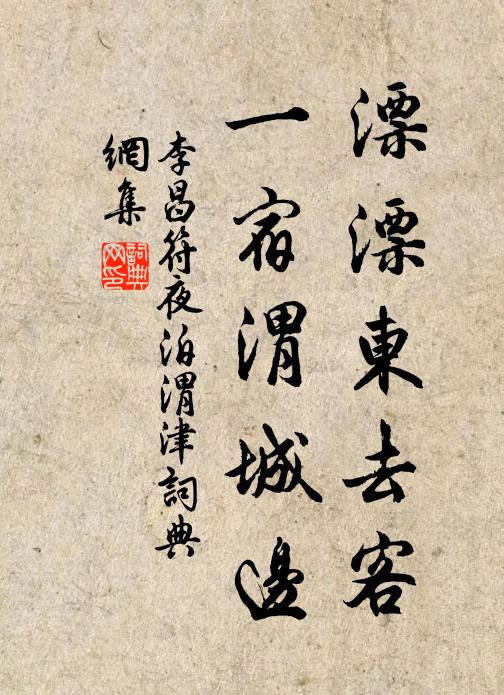 漂漂東去客
一宿渭城邊
李昌符夜泊渭津詞典
網集
詞典
网印